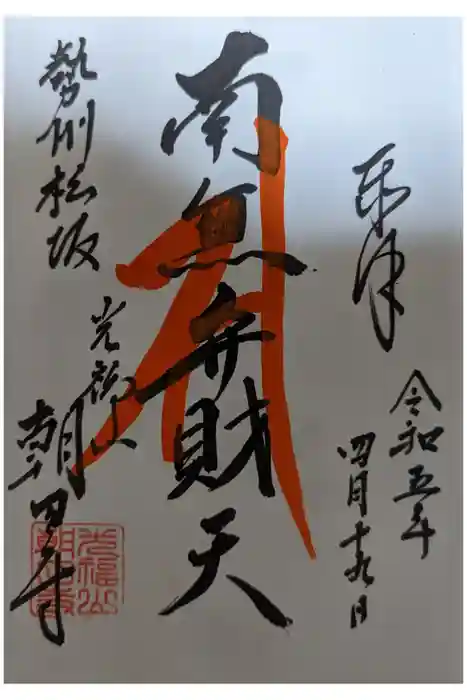 奉拝
令和五年
四月十九日
南無弁財天
勢州松坂
光福山
朝田寺
光福山
朝田寺